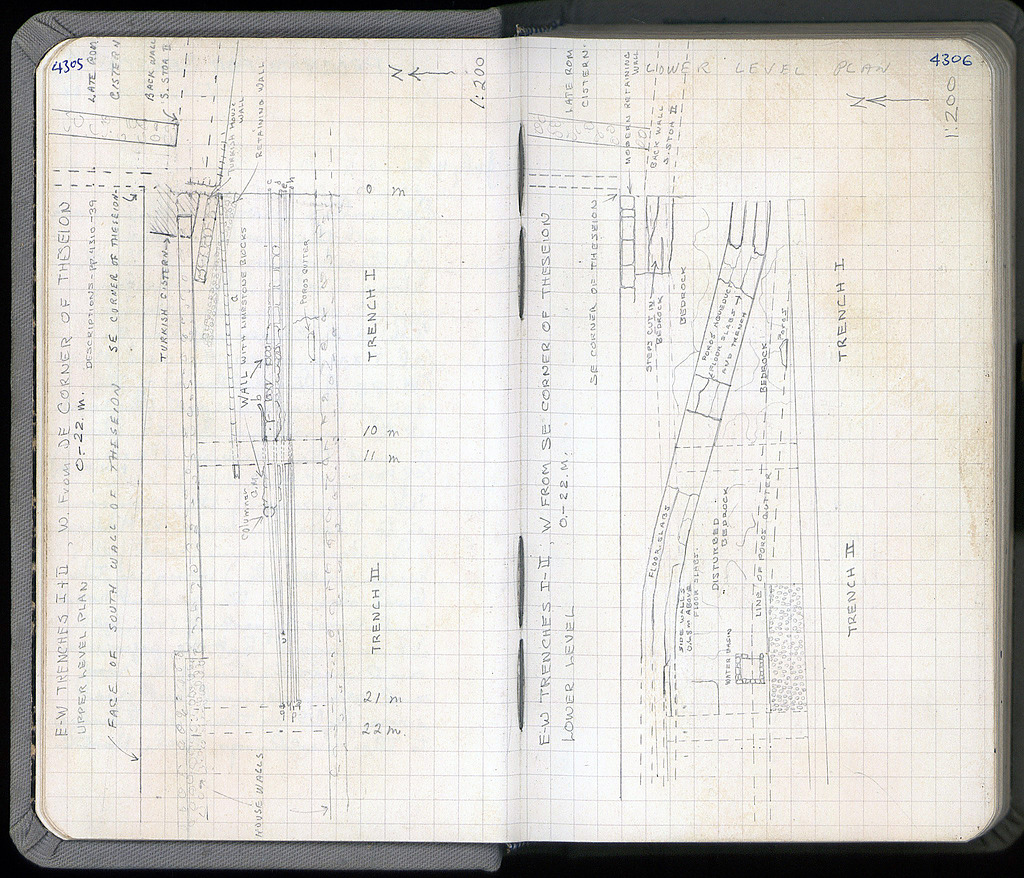 4305
E-W TRENCHES I+II, W. FROM SE CORNER OF THESEION
0.-22. m.
UPPER LEVEL PLAN
DESCRIPTIONS - PP. 4310-39
FACE OF SOUTH WALL OF THESEION
SE CORNER OF THESEION
LATE ROM
CISTERN
BACK WALL
S. STOA II
TURKISH CISTERN
TURKISH HOUSE
WALL
RETAINING WALL
N
1:200
a
WALL WITH LIMESTONE BLOCKS
b
POROS GUTTER
COLUMNAR
HOUSE WALLS
0 m
10 m
11 m
21 m
22 m.
TRENCH I
TRENCH II
4306
E-W TRENCHES I-II, W FROM SE CORNER OF THESEION
0.-22. M.
LOWER LEVEL
LOWER LEVEL PLAN
SE CORNER OF THESEION
LATE ROM
CISTERN.
MODERN RETAINING
WALL
BACK WALL
S. STOA II
N
1:200
STEPS CUT IN
BEDROCK
BEDROCK
POROS AQUEDUCT
FLOOR SLABS
AND TRENCH
BEDROCK
POROS
FLOOR SLABS
SIDE WALLS
0.48 m ABOVE
FLOOR SLABS.
DISTURBED
BEDROCK
WATER BASIN
LINE OF POROS GUTTER
TRENCH I
TRENCH II